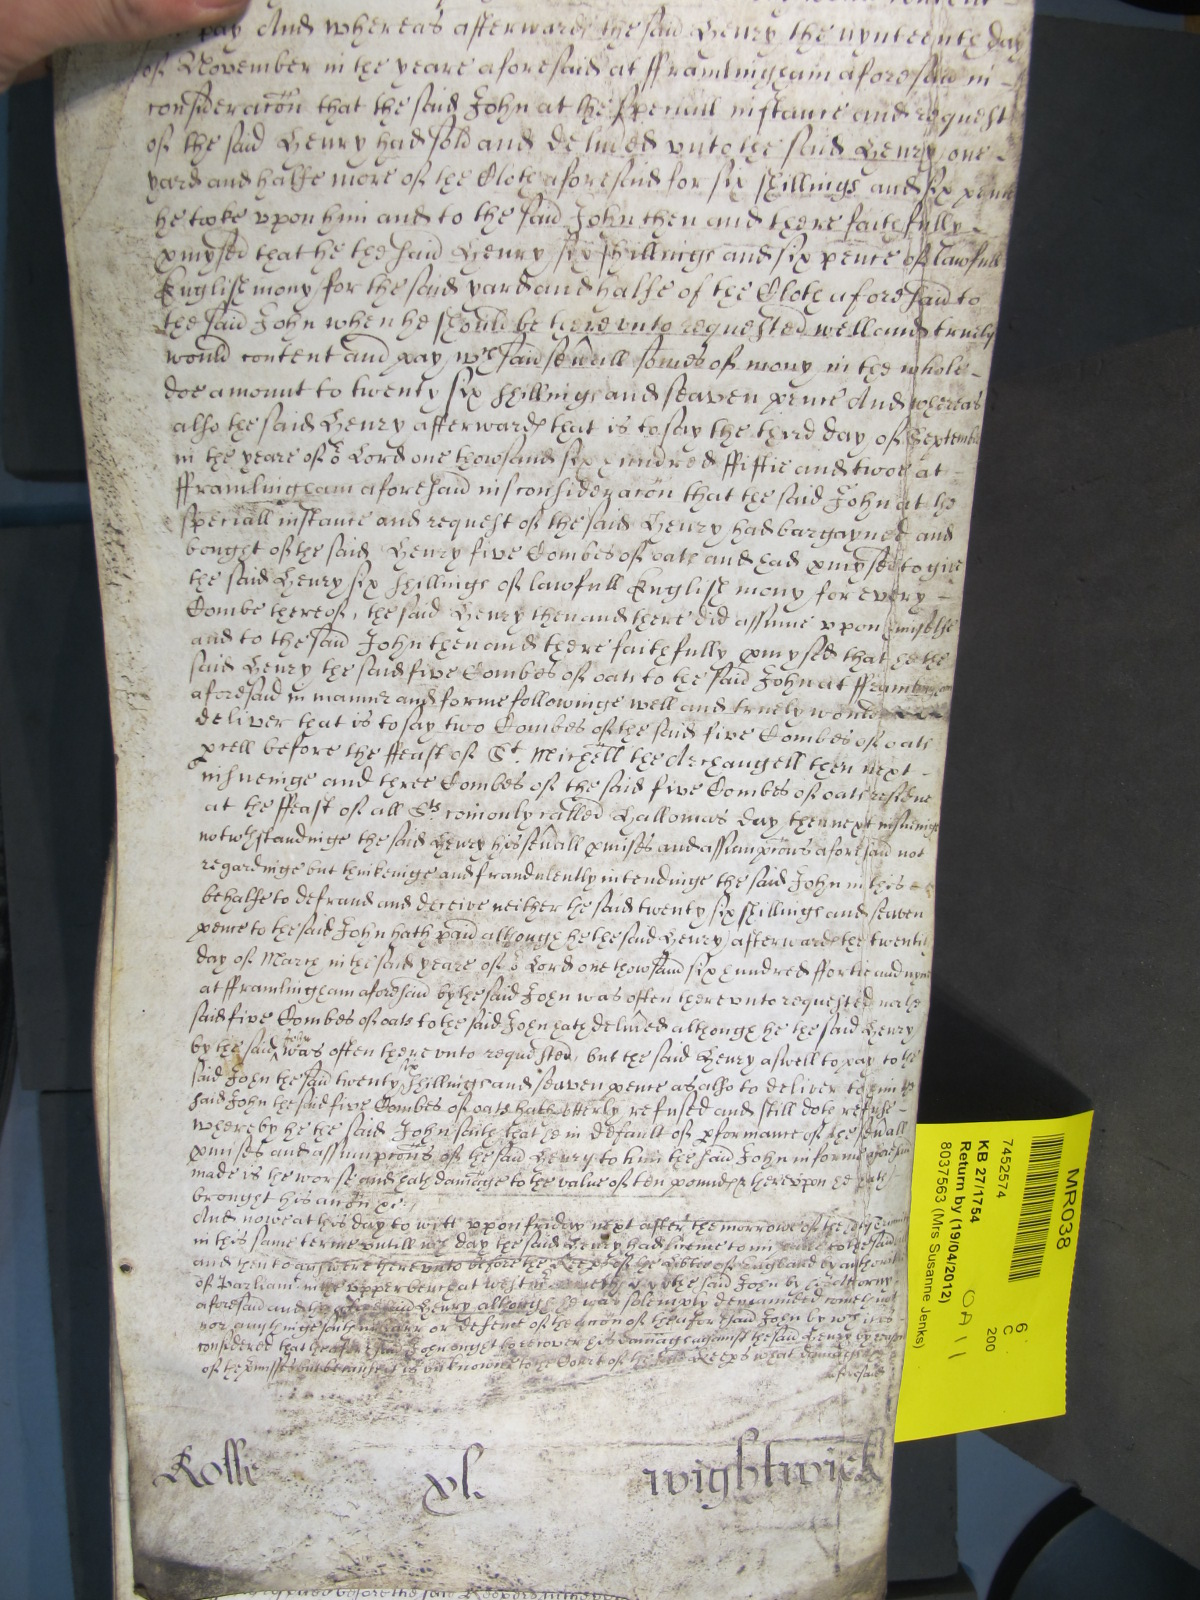 pay And whereas afterwards the said Henry the nynteenth day
of November in the yeare aforesaid at Framlingham aforesaid in
consideracon that the said John at the speciall instance and request
of the said Henry had sold and delived unto the said Henry one
yard and halfe more of the Cloth aforesaid for six shillings and six pence
he tooke vpon him and to the said John then and there faithfully
pmysed that he the said Henry six shillings and six pence of lawfull
English mony for the said yard and halfe of the Cloth aforesaid to
the said John when he should be therevnto requested well and truely
would content and pay wch said sevall somes of mony in the whole
doe amount to twenty six shillings and seaven pence And whereas
also the said Henry afterwards that is to say the third day of September
in the yeare of or Lord one thowsand six hundred ffiftie and twoe at
fframlingham aforesaid in consideracon that the said John at the
speciall instance and request of the said Henry had bargayned and
bought of the said Henry five Combes of oats and had pmysed to give
the said Henry six shillings of lawfull English mony for every
Combe thereof, the said Henry then and there did assume vpon himselfe
and to the said John then and there faithfully pmysed that he the
said Henry the said five Combes of oats to the said John at fframlingham
aforesaid in manner and forme followinge well and truely would
deliver that is to say two Combes of the said five Combes of oats
pcell before the ffeast of St. Michell the Archangell then next
insueinge and three Combes of the said five Combes of oats residue
at the ffeast of all Sts comonly called Hallomas day then next insueinge
notwthstandinge the said Henry his sevall pmises and assumpcons aforesaid not
regardinge but thinkeinge and fraudulently intendinge the said John in this
behalfe to defraud and deceive neither the said twenty six shillings and seaven
pence to the said John hath paid although he the said Henry afterwards the twentith
day of March in the said yeare of or Lord one thowsand six hundred ffortie and nyne
at fframlingham aforesaid by the said John was often therevnto requested nor the
said five Combes of oats to the said John hath delived although he the said Henry
by the said John was often therevnto requested, but the said Henry aswell to pay to the
said John the said twenty six shillings and seaven pence as also to deliver to him the
said John the said five Combes of oats hath vtterly refused and still doth refuse
whereby he the said John saith that he in default of pformance of the sevall
pmises and assumpcons of the said Henry to him the said John in forme aforesaid
made is the worse and hath damage to the value of ten pounds & therevpon he hath
brought his sute &c.
And nowe at this day to witt vpon friday next after the morrowe of the holy Trinity
in this same terme vntill wch day the said Henry had licence to imparle to the said
and then to answere here vnto before the Keeps of the Libtie of England by authoritie
of Parliamt in the vpper bench at Westm cometh the said John by his Attorny
aforesaid and the said Henry although he was solemply demaunded cometh not
nor any thinge saith in barr or defence of the accon of the aforesaid John by wch it is
considered that the aforesaid John ought to recover his damages against the said Henry by reason
of the pmisses but because it is vnknowne to the Court of the said Keeps what damages
aforesaid
Rolle xl. Wightwick
before the said Keepers
MR038
7452574
KB 27/1754
Return by (19/04/2012)
8037563 (Mrs Susanne Jenks)
6
C
200
OA 11